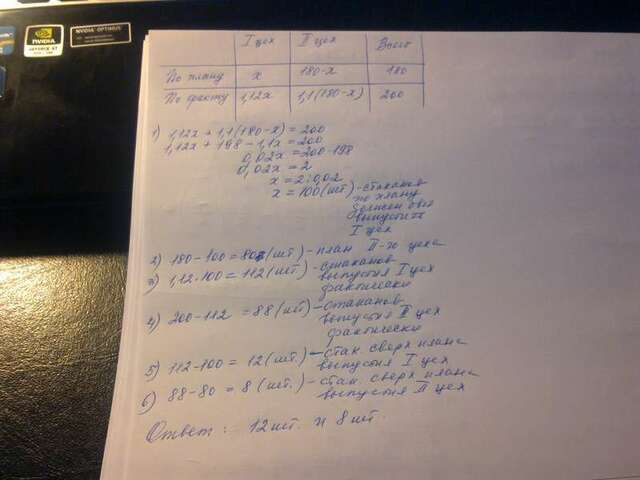 NVIDIA
GEFORCE GT
NVIDIA OPTIMUS
I цех II цех Всего
По плану x 180-x 180
По факту 1,12x 1,1(180-x) 200
1) 1,12x + 1,1(180-x) = 200
1,12x + 198 - 1,1x = 200
0,02x = 200-198
0,02x = 2
x = 2:0,02
x = 100(шт) - стаканов
по плану
должен был
выпустить
I цех
2) 180-100 = 80(шт) - план II-го цеха
3) 1,12·100 = 112(шт) - стаканов
выпустил I цех
фактически
4) 200-112 = 88(шт) - стаканов
выпустил II цех
фактически
5) 112-100 = 12(шт.) - стак. сверх плана
выпустил I цех
6) 88-80 = 8(шт.) - стак. сверх плана
выпустил II цех
Ответ: 12шт. и 8шт.